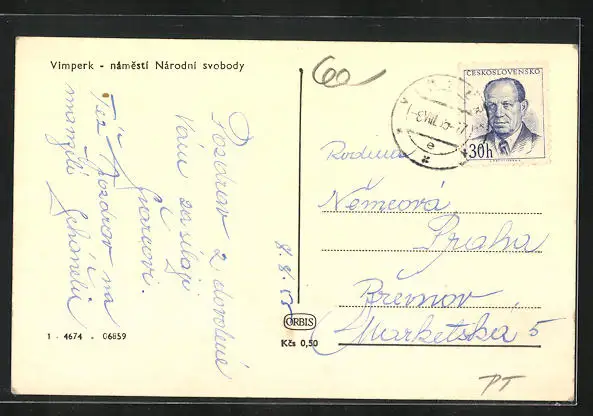 Vimperk - náměstí Národní svobody
60
ČESKOSLOVENSKO
30h
Pozdrav z dovolené
Vám zasílají
Též pozdrav na
manželé
8. 8. 53
Rodina
Němcová
Praha
Břevnov
Markétská 5
ORBIS
Kčs 0,50
1 - 4674 - 06859
PT